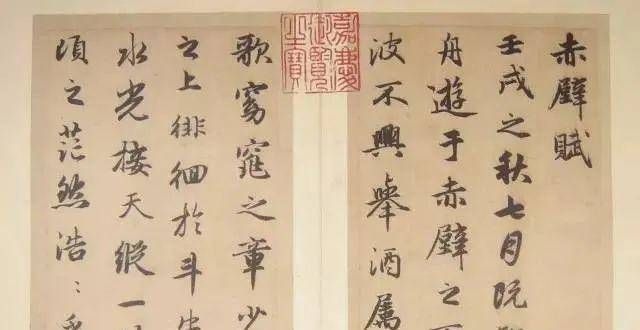 赤壁賦
壬戌之秋七月既
舟遊于赤壁之
波不興舉酒属
嘉慶御覽之寶
歌窈窕之章少
之上徘徊於斗牛
水光接天縱一
頃之茫然浩〻